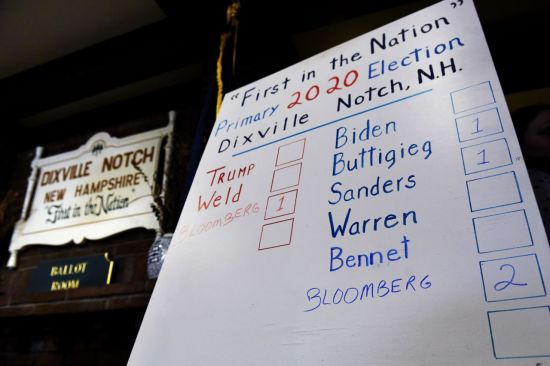 "First in the Nation"
Primary 2020 Election
Dixville Notch, N.H.
TRUMP
Weld
BLOOMBERG 1
Biden
Buttigieg 1
Sanders 1
Warren
Bennet
BLOOMBERG 2
DIXVILLE NOTCH
NEW HAMPSHIRE
"First in the Nation
BALLOT
ROOM